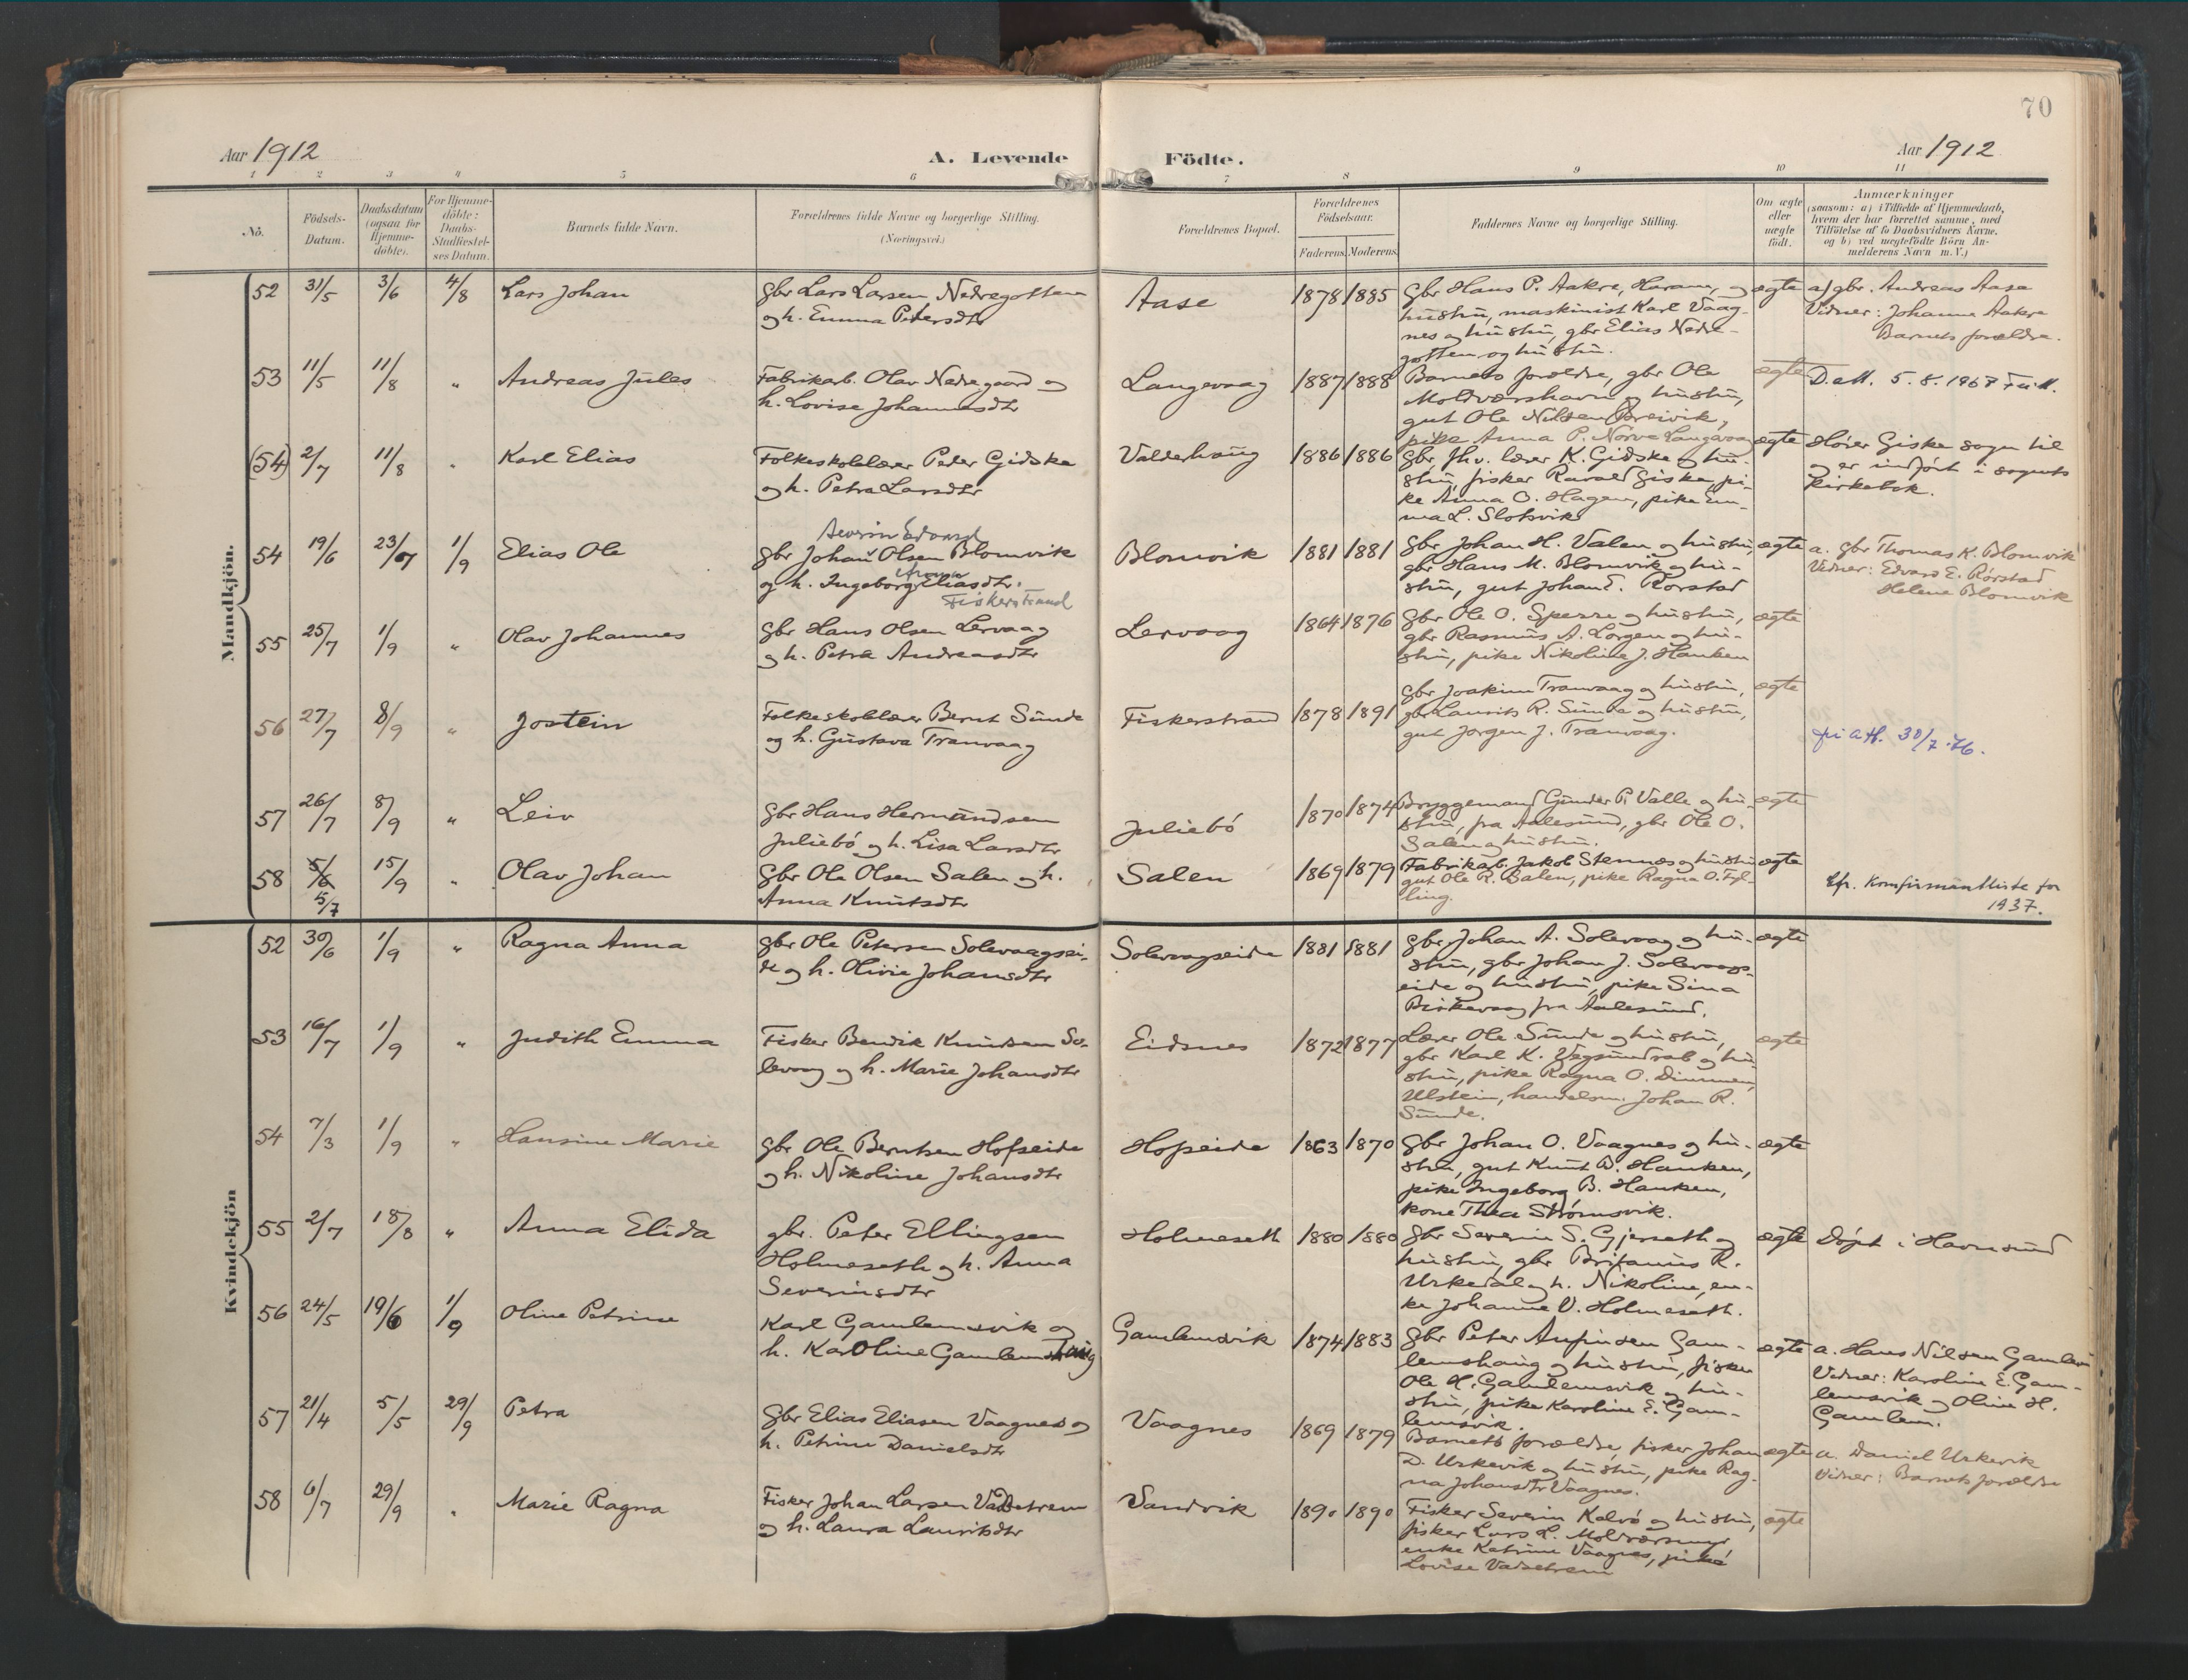 70
Aar 1912
A. Levende Födte.
Aar 1912
1 2 3 4 5 6 7 8 9 10 11
No.
Födsels-Datum.
Daabsdatum (ogsaa for Hjemme-döbte).
For Hjemme-döbte: Daabs-Stadfæstel-ses Datum.
Barnets fulde Navn.
Forældrenes fulde Navne og borgerlige Stilling. (Næringsvei.)
Forældrenes Bopæl.
Forældrenes Födselsaar.
Faderens. Moderens.
Faddernes Navne og borgerlige Stilling.
Om ægte eller uægte födt.
Anmærkninger
(saasom: a) i Tilfælde af Hjemmedaab,
hvem der har forrettet samme, med
Tilföielse af to Daabsvidners Navne,
og b) ved uægtefödte Börn An-
melderens Navn m. V.)
Mandkjön.
52 31/5 3/6 4/8 Lars Johan
gbr Lars Larsen Nedregotten
og h. Emma Petersdtr
Aase 1878 1885
gbr Hans P. Aakre, Haram, og
hustru, maskinist Karl Vaag-
nes og hustru, gbr Elias Nedre-
gotten og hustru.
ægte
a) gbr. Andreas Aase
Vidner: Johanna Aakre
Barnets forældre.
53 11/5 11/8 " Andreas Jules
Fabrikarb. Olav Nedregaard og
h. Lovise Johannesdtr
Langevaag 1887 1888
Barnets forældre, gbr Ole
Moldværshavn og hustru,
gut Ole Nilsen Breivik,
pike Anna P. Norve Langevaag
ægte
D. att. 5.8.1967
(54) 2/7 11/8 " Karl Elias
Folkeskolelærer Peder Gidske
og h. Petra Larsdtr
Valderhaug 1886 1886
gbr fhv. lærer K. Gidske og hu-
stru, fisker Ravald Giske, pi-
ke Anna O. Hagen, pike Em-
ma L. Slotsvik
ægte
Hører Giske sogn til
og er indført i sognets
kirkebok.
54 19/6 23/6 1/9 Elias Ole
Severin Edvard
gbr Johan Olsen Blomvik
og h. Ingeborg Eliasdtr.
Fiskerstrand
Blomvik 1881 1881
gbr Johan H. Valen og hustru,
gbr Hans M. Blomvik og hu-
stru, gut Johan E. Rørstad
ægte
a. gbr Thomas K. Blomvik
Vidner: Edvard E. Rørstad
Helene Blomvik
55 25/7 1/9 " Olav Johannes
gbr Hans Olsen Lervaag
og h. Petra Andreasdtr
Lervaag 1864 1876
gbr Ole O. Sperre og hustru,
gbr Rasmus A. Lorgen og hu-
stru, pike Nikoline J. Hanken
ægte
56 27/7 8/9 " Jostein
Folkeskolelærer Bernt Sunde
og h. Gustava Tranvaag
Fiskerstrand 1878 1891
gbr Joakim Tranvaag og hustru,
gbr Laurits R. Sunde og hustru,
gut Jørgen J. Tranvaag.
ægte
fri att. 30/7.76.
57 26/7 8/9 " Leiv
gbr Hans Hermandsen
Juliebö og h. Lisa Larsdtr
Juliebö 1870 1874
Bryggemand Gunder P. Valle og hu-
stru, fra Aalesund, gbr Ole O.
Salen og hustru.
ægte
58 5/6 5/7 15/9 " Olav Johan
gbr Ole Olsen Salen og h.
Anna Knutsdtr
Salen 1869 1879
Fabrikarb. Jakob Stennes og hustru
gut Ole R. Salen, pike Ragna O. Fyl-
ling.
ægte
Cfr. Konfirmantliste for
1937.
Kvindekjön
52 30/6 1/9 " Ragna Anna
gbr Ole Petersen Solevaagsei-
de og h. Olivie Johansdtr
Solevaagseide 1881 1881
gbr Johan A. Solevaag og hu-
stru, gbr Johan J. Solevaags-
eide og hustru, pike Sina
Birkevaag fra Aalesund.
ægte
53 16/7 1/9 " Judith Emma
Fisker Bendik Knudsen So-
levaag og h. Marie Johansdtr
Eidsnes 1872 1877
Lærer Ole Sunde og hustru,
gbr Karl K. Vegsundrab og hu-
stru, pike Ragna O. Dimmen,
Ulstein, handelsm. Johan R.
Sunde.
ægte
54 7/3 1/9 " Hansine Marie
gbr Ole Berntsen Hofseide
og h. Nikoline Johansdtr
Hofseide 1863 1870
gbr Johan O. Vaagnes og hu-
stru, gut Knut B. Hanken,
pike Ingeborg B. Hanken,
kone Thea Strømsvik.
ægte
55 2/7 18/8 " Anna Elida
gbr. Peter Ellingsen
Holmeseth og h. Anna
Severinsdtr
Holmeseth 1880 1880
gbr Severin S. Gjerseth og
hustru, gbr Britanus R.
Urkedal og h. Nikoline, en-
ke Johanne V. Holmeseth.
ægte
Døpt i Havnsund
56 24/5 19/6 1/9 Oline Petrine
Karl Gamlemsvik og
h. Karoline Gamlemshaug
Gamlemsvik 1874 1883
gbr Peter Anfindsen Gam-
lemshaug og hustru, fisker
Ole H. Gamlemsvik og hu-
stru, pike Karoline E. Gam-
lemsvik.
ægte
a. Hans Nilsen Gamlem
Vidner: Karoline E. Gam-
lemsvik og Oline H.
Gamlem.
57 21/4 5/5 29/9 Petra
gbr Elias Eliasen Vaagnes og
h. Petrine Danielsdtr
Vaagnes 1869 1879
Barnets forældre, fisker Johan
D. Urkevik og hustru, pike Rag-
na Johansdtr Vaagnes.
ægte
a. Daniel Urkevik
Vidner: Barnets forældre
58 6/7 29/9 " Marie Ragna
Fisker Johan Larsen Vadsetrem
og h. Laura Lauritsdtr
Sandvik 1890 1890
Fisker Severin Kalvö og hustru,
fisker Lars L. Moldværsmyr,
enke Katrine Vaagnes, pike
Lovise Vadsetrem
ægte